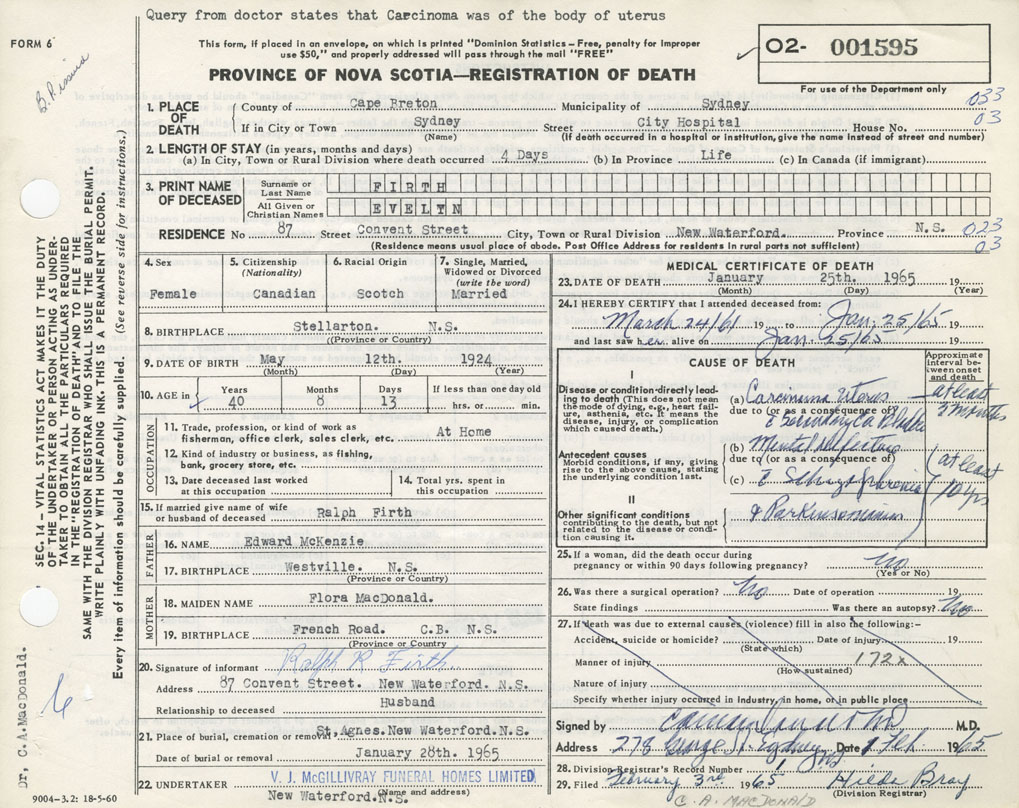 Query from doctor states that Carcinoma was of the body of uterus
FORM 6
B.P. issued
This form, if placed in an envelope, on which is printed "Dominion Statistics – Free, penalty for improper
use $50," and properly addressed will pass through the mail "FREE"
O2- 001595
PROVINCE OF NOVA SCOTIA—REGISTRATION OF DEATH
For use of the Department only
033
03
1. PLACE OF DEATH
County of Cape Breton Municipality of Sydney
If in City or Town Sydney Street City Hospital House No.
(Name) (If death occurred in a hospital or institution, give the name instead of street and number)
2. LENGTH OF STAY (in years, months and days)
(a) In City, Town or Rural Division where death occurred 4 Days (b) In Province Life (c) In Canada (if immigrant)
3. PRINT NAME OF DECEASED
Surname or Last Name FIRTH
All Given or Christian Names EVELYN
RESIDENCE No 87 Street Convent Street City, Town or Rural Division New Waterford. Province N.S.
023
03
(Residence means usual place of abode. Post Office Address for residents in rural parts not sufficient)
4. Sex
Female
5. Citizenship (Nationality)
Canadian
6. Racial Origin
Scotch
7. Single, Married, Widowed or Divorced (write the word)
Married
8. BIRTHPLACE Stellarton. N.S.
((Province or Country)
9. DATE OF BIRTH May 12th. 1924
(Month) (Day) (Year)
10. AGE in Years 40 Months 8 Days 13 If less than one day old hrs. or min.
OCCUPATION
11. Trade, profession, or kind of work as
fisherman, office clerk, sales clerk, etc. At Home
12. Kind of industry or business, as fishing,
bank, grocery store, etc.
13. Date deceased last worked
at this occupation
14. Total yrs. spent in
this occupation
15. If married give name of wife
or husband of deceased Ralph Firth
FATHER
16. NAME Edward McKenzie
17. BIRTHPLACE Westville. N.S.
(Province or Country)
MOTHER
18. MAIDEN NAME Flora MacDonald.
19. BIRTHPLACE French Road. C.B. N.S.
(Province or Country)
20. Signature of informant Ralph R Firth
Address 87 Convent Street. New Waterford. N.S.
Relationship to deceased Husband
21. Place of burial, cremation or removal St. Agnes. New Waterford. N.S.
Date of burial or removal January 28th. 1965
22. UNDERTAKER V. J. McGILLIVRAY FUNERAL HOMES LIMITED
(Name and address)
New Waterford. N.S.
MEDICAL CERTIFICATE OF DEATH
23. DATE OF DEATH January 25th. 1965 19
(Month) (Day) (Year)
24. I HEREBY CERTIFY that I attended deceased from:
March 24/61 19 to Jan, 25/65 19
and last saw her alive on Jan. 25/65 19
CAUSE OF DEATH
Approximate interval between onset and death
I
Disease or condition directly leading to death (This does not mean the mode of dying, e.g., heart failure, asthenia, etc. It means the disease, injury, or complication which caused death.)
(a) Carcinoma Uterus
at least
3 months
due to (or as a consequence of)
Antecedent causes
Morbid conditions, if any, giving rise to the above cause, stating the underlying condition last.
(b) Mental
due to (or as a consequence of)
(c) Schizophrenia
at least
10 yrs
II
Other significant conditions
contributing to the death, but not related to the disease or condition causing it.
& Parkinsonism
25. If a woman, did the death occur during
pregnancy or within 90 days following pregnancy? No
(Yes or No)
26. Was there a surgical operation? No Date of operation 19
State findings Was there an autopsy? No
27. If death was due to external causes (violence) fill in also the following:–
Accident, suicide or homicide? Date of injury 19
(State which)
Manner of injury 172x
(How sustained)
Nature of injury
Specify whether injury occurred in Industry, in home, or in public place
Signed by M.D.
Address 278 George St. Sydney NS Date 19 65
28. Division Registrar's Record Number
29. Filed February 3rd 1965 Hilda Bray
(Division Registrar)
C. A. MACDONALD
SEC. 14 – VITAL STATISTICS ACT MAKES IT THE DUTY
OF THE UNDERTAKER OR PERSON ACTING AS UNDER-
TAKER TO OBTAIN ALL THE PARTICULARS REQUIRED
IN THE "REGISTRATION OF DEATH" AND TO FILE THE
SAME WITH THE DIVISION REGISTRAR WHO SHALL ISSUE THE BURIAL PERMIT.
WRITE PLAINLY WITH UNFADING INK. THIS IS A PERMANENT RECORD.
Every item of information should be carefully supplied. (See reverse side for instructions.)
Dr, C.A.MacDonald.
6
9004–3.2: 18-5-60